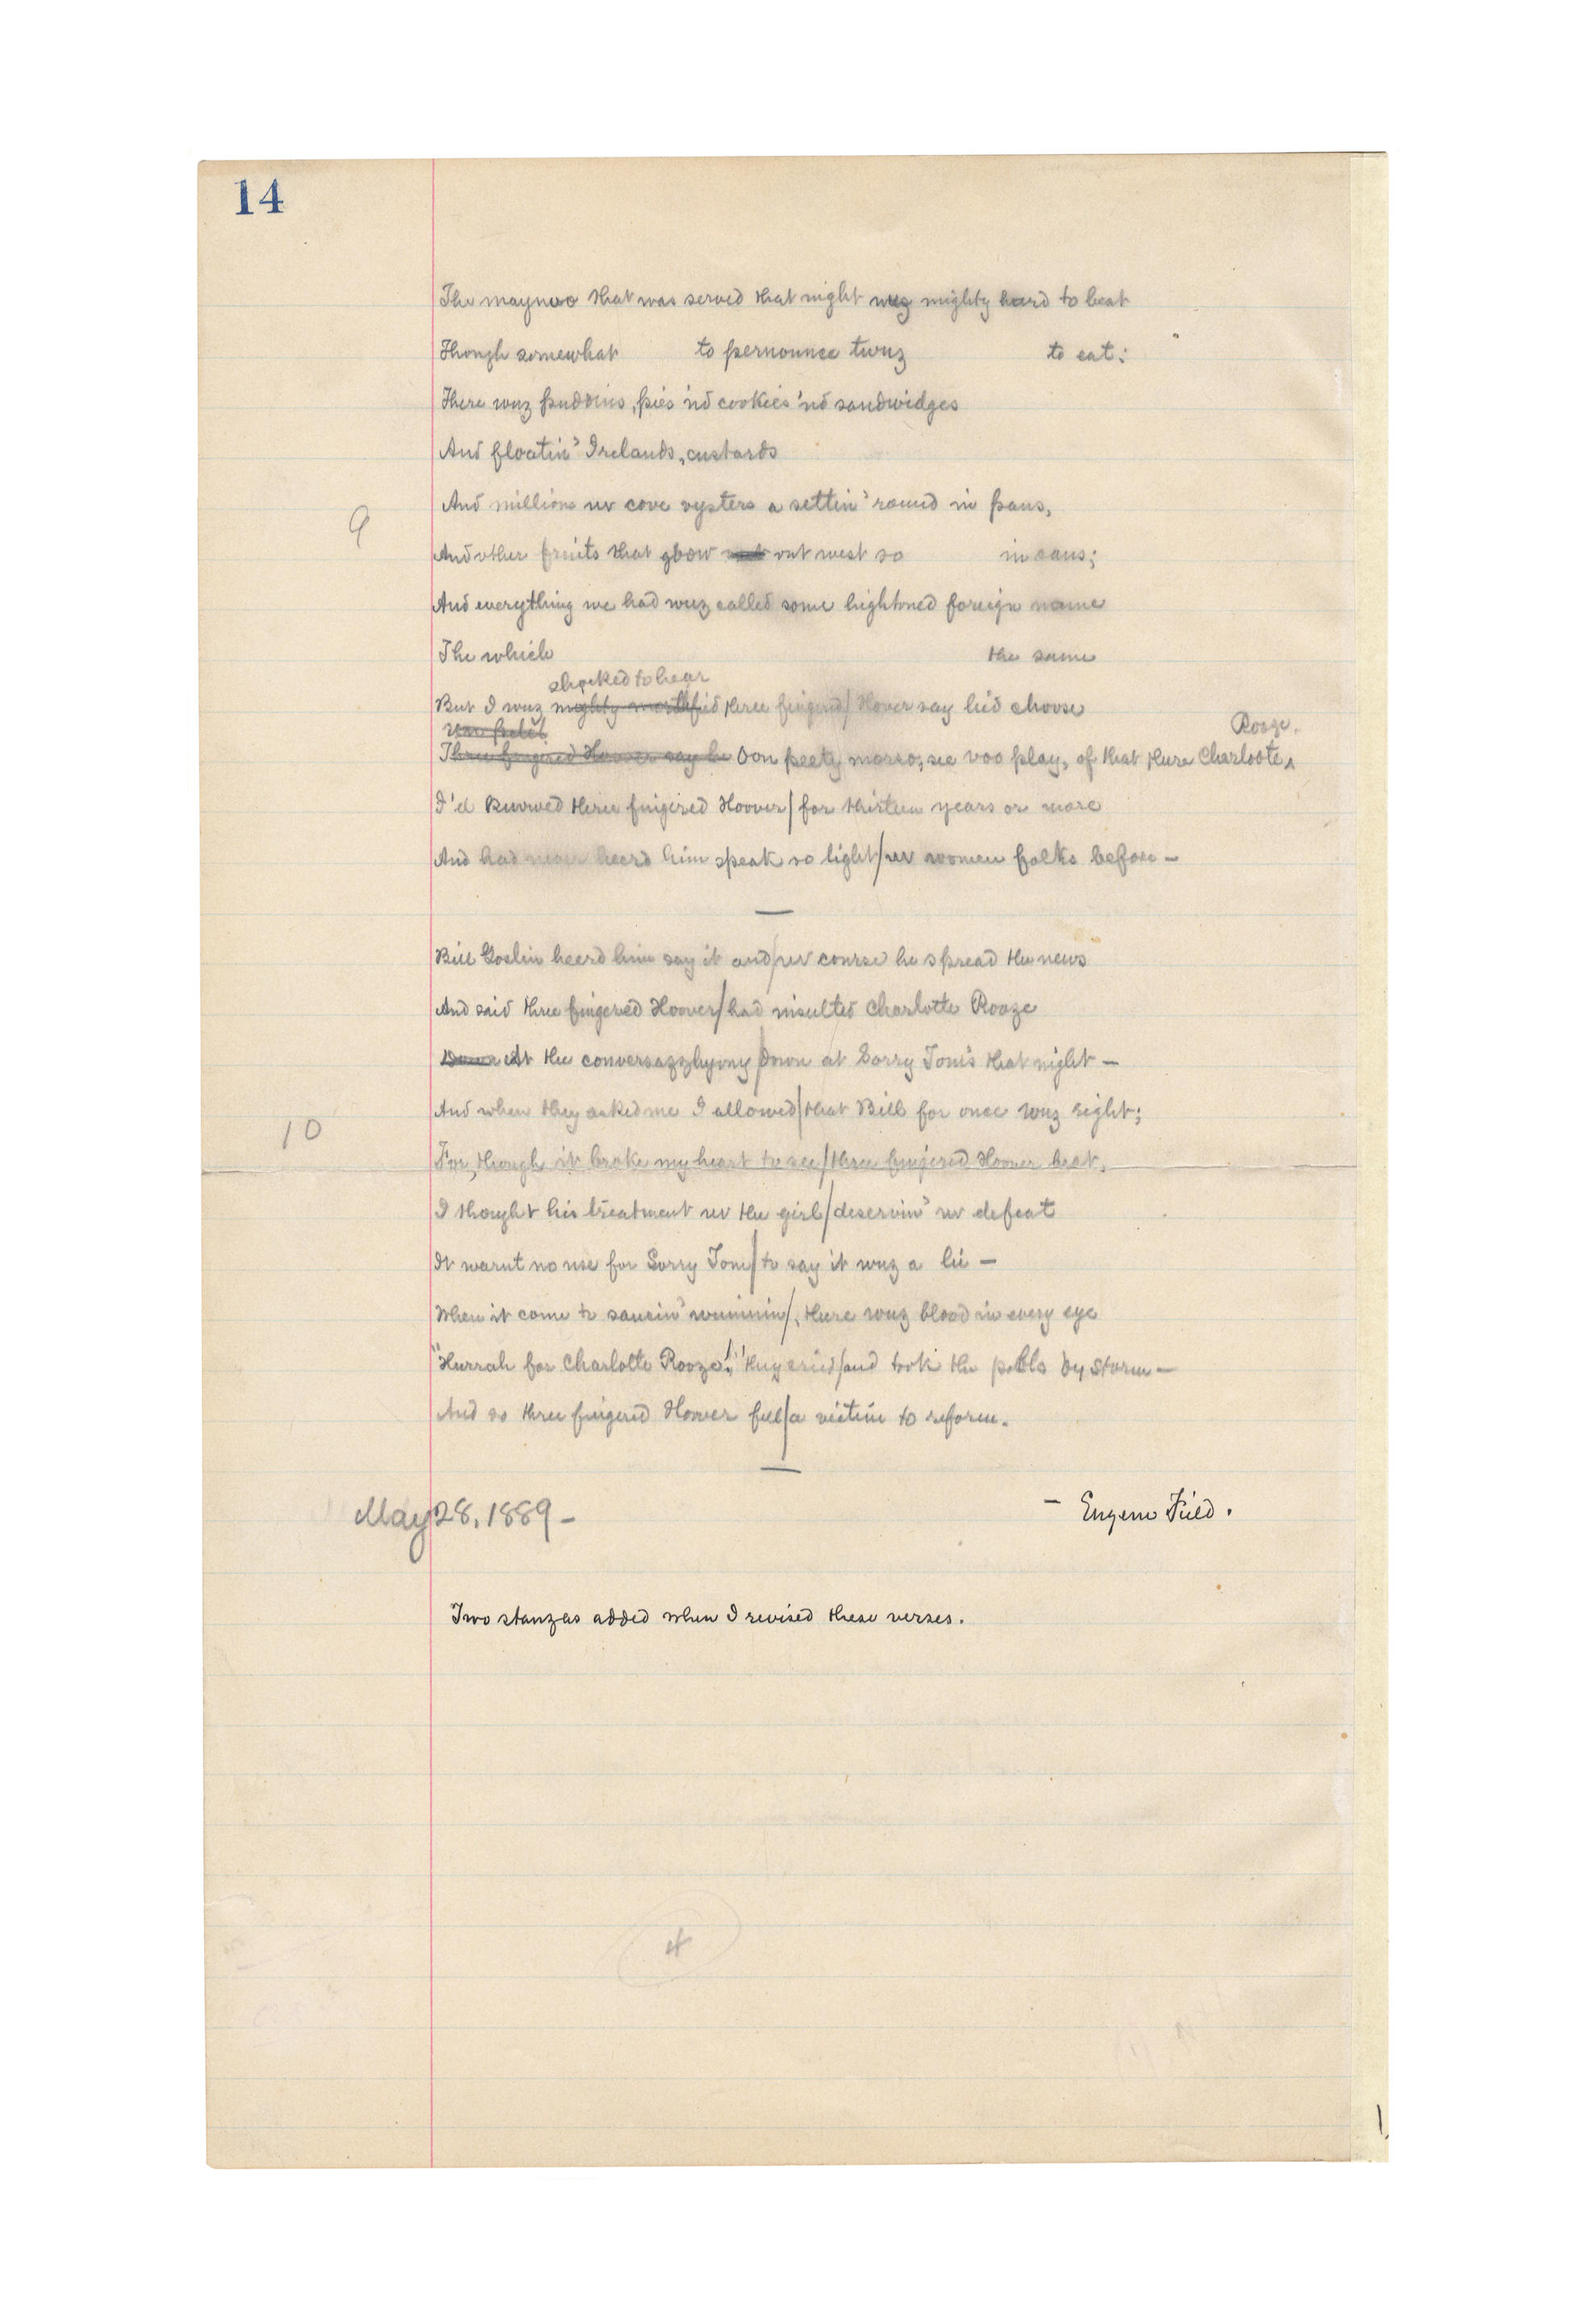 14
The maynoo that was served that night wuz mighty hard to beat
Though somewhat to pernounce twuz to eat:
There wuz puddins, pies 'nd cookies 'nd sandwidges
And floatin' Irelands, custards
And millions uv cove oysters a settin' round in pans,
9
And other fruits that grow out west so in cans;
And everything we had wuz called some hightoned foreign name
The which the same
shocked to hear
But I wuz mighty three fingered Hoover say he'd choose
Rooze.
Three fingered Hoover say he bon peety morso, see voo play, of that there Charlotte
I'd knowed three fingered Hoover / for thirteen years or more
And had never heerd him speak so light / uv women folks before –
Bill Goslin heerd him say it and / uv course he spread the news
And said three fingered Hoover / had insulted Charlotte Rooze
Down At the conversazzhyony down at Sorry Tom's that night –
And when they asked me I allowed / that Bill for once wuz right;
10
For, though it broke my heart to see / three fingered Hoover beat,
I thought his treatment uv the girl / deservin' uv defeat
It warnt no use for Sorry Tom / to say it wuz a lie –
When it come to saucin' wimmin /, there wuz blood in every eye
"Hurrah for Charlotte Rooze!" they cried / and took the polls by storm –
And so three fingered Hoover fell / a victim to reform.
May 28, 1889 –
– Eugene Field.
Two stanzas added when I revised these verses.